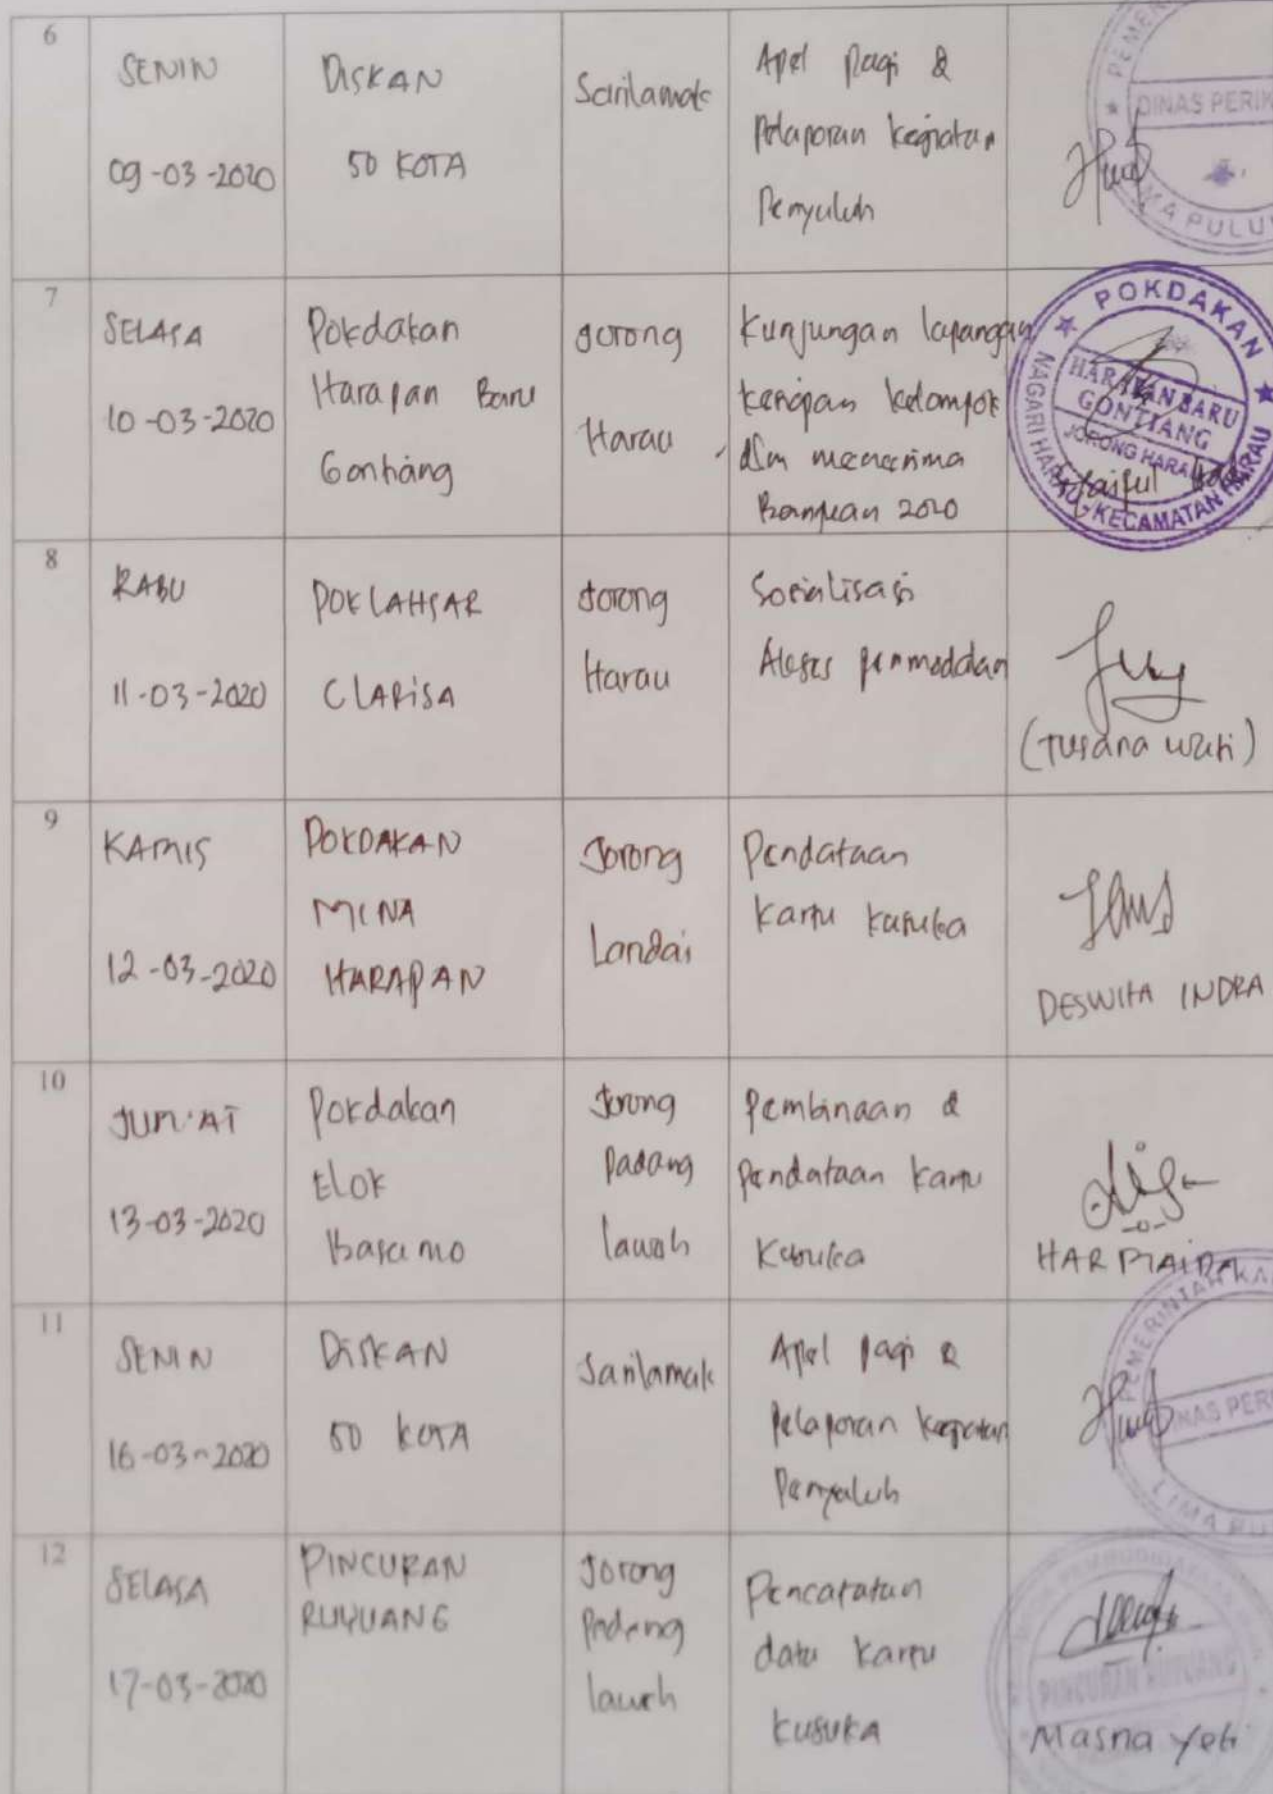 6
SENIN
09-03-2020
DISKAN
50 KOTA
Sarilamak
Apel Pagi &
Pelaporan kegiatan
Penyuluh
PEMERIN
DINAS PERIK
MA PULU
7
SELASA
10-03-2020
Pokdakan
Harapan Baru
Gontiang
Jorong
Harau
Kunjungan lapangan
kesiapan kelompok
dlm menerima
Bantuan 2020
POKDAKAN
HARAPAN BARU
GONTIANG
JORONG HARAU
NAGARI HARAU - KECAMATAN HARAU
Syaiful
8
RABU
11-03-2020
POKLAHSAR
CLARISA
Jorong
Harau
Sosialisasi
Akses permodalan
(Tusana wati)
9
KAMIS
12-03-2020
POKDAKAN
MINA
HARAPAN
Jorong
Landai
Pendataan
kartu kusuka
DESWITA INDRA
10
JUM'AT
13-03-2020
Pokdakan
ELOK
Basamo
Jorong
Padang
laweh
Pembinaan &
Pendataan kartu
Kusuka
HARMAIDA
11
SENIN
16-03-2020
DISKAN
50 KOTA
Sarilamak
Apel pagi &
Pelaporan kegiatan
Penyuluh
PEMERINTAH KA
NAS PERI
LIMA PU
12
SELASA
17-03-2020
PINCURAN
RUYUANG
Jorong
Padang
laweh
Pencatatan
data kartu
KUSUKA
PINCURAN RUYUANG
Masna Yeti